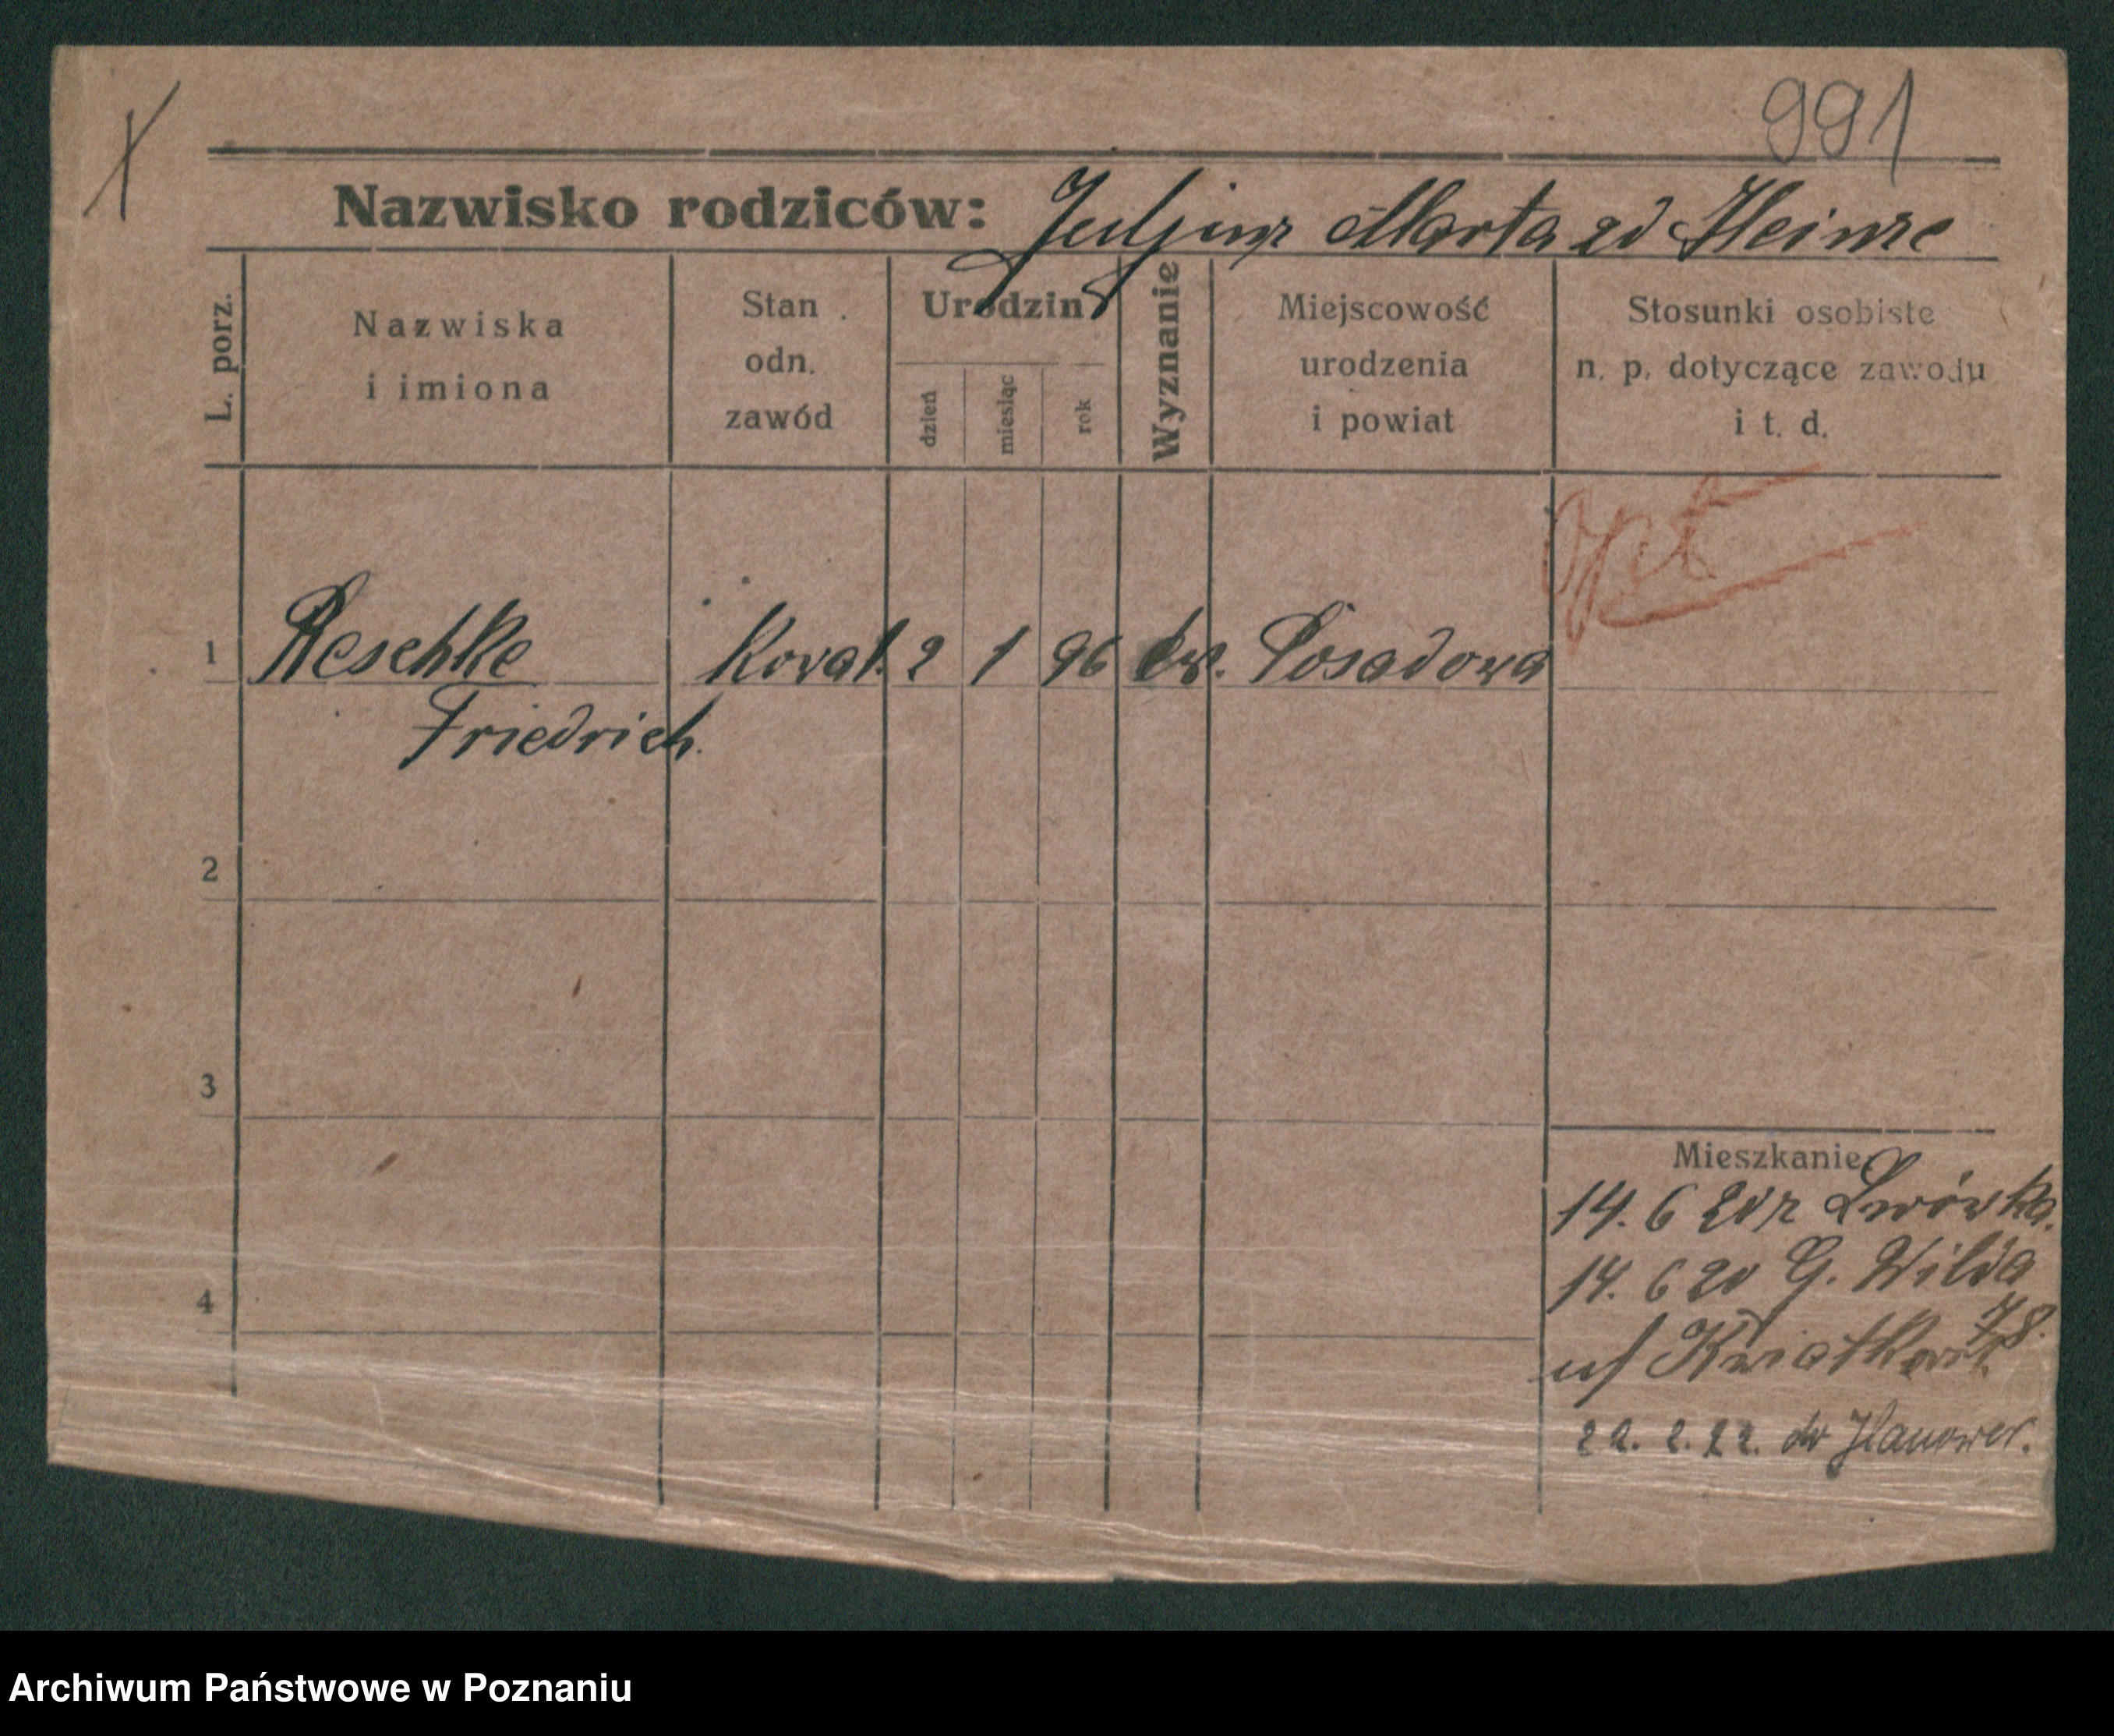 991
Nazwisko rodziców: Juljusz Marta zd Heinze
L. porz.
Nazwiska
i imiona
Stan
odn.
zawód
Urodzin
dzień
miesiąc
rok
Wyznanie
Miejscowość
urodzenia
i powiat
Stosunki osobiste
n. p. dotyczące zawodu
i t. d.
Opt
1 Reschke Kowal. 2 1 96 ew. Posadowa
Friedrich
2
3
Mieszkanie
14. 6 20 z Lwówka.
14. 6 20 G. Wilda
78.
u/ Kwiatkowsk.
22. 2. 22. do Hanower.
4
Archiwum Państwowe w Poznaniu